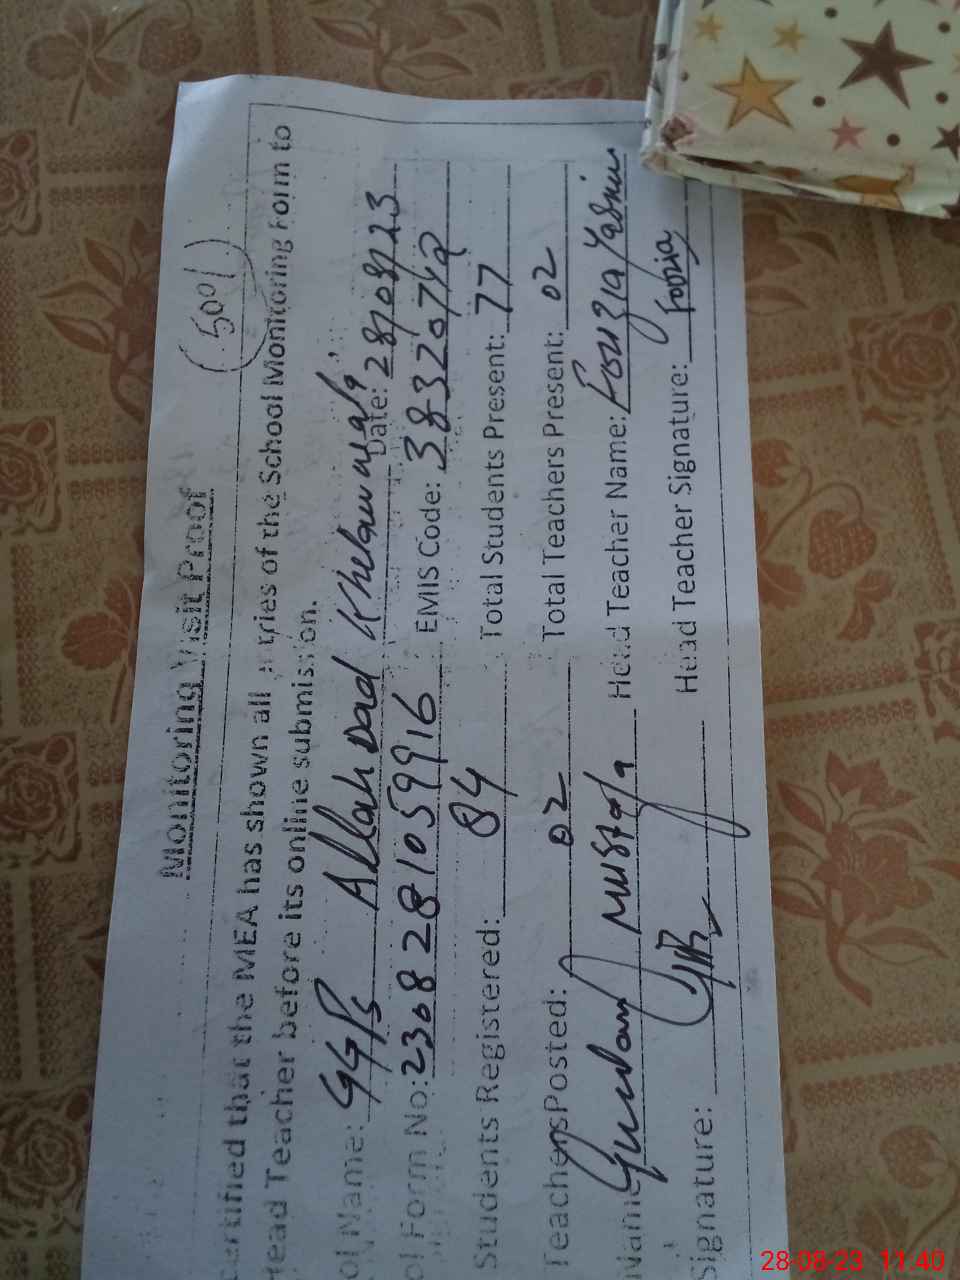 Monitoring Visit Proof
(5001)
ertified that the MEA has shown all entries of the School Monitoring Form to
Head Teacher before its online submission.
ol Name: GGPS Allah Dad Khelawala Date: 28/08/23
ol Form No: 2308281059916 EMIS Code: 38320742
Students Registered: 84 Total Students Present: 77
Teachers Posted: 02 Total Teachers Present: 02
Name Ghulam Mustafa Head Teacher Name: Fouzia Yasmin
Signature: Head Teacher Signature: Fouzia
28-08-23 11:40